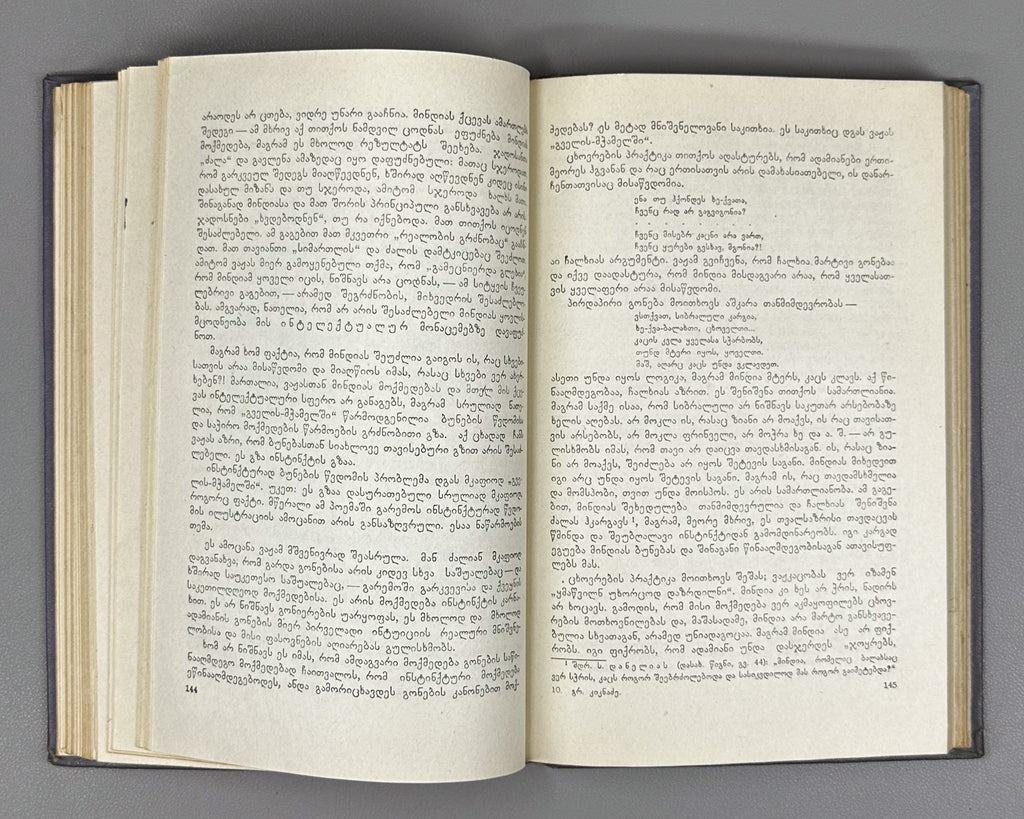 არაოდეს არ ცთება, ვიდრე უნარი გააჩნია. მინდიას ქცევას ამართლებს
შედეგი — ამ მხრივ აქ თითქოს ნამდვილ ცოდნას ეფუძნება მინდიას
მოქმედება, მაგრამ ეს მხოლოდ რეზულტატს შეეხება. ჯადოსანთა
„ძალა“ და გავლენა ამაზედაც იყო დაფუძნებული: მათაც სჯეროდათ,
რომ გარკვეულ შედეგს მიაღწევდნენ, ხშირად აღწევდნენ კიდეც ისინი
დასახულ მიზანს და თუ სჯეროდა, ამიტომ სჯეროდა ხალხს მათი.
შინაგანად მინდიასა და მათ შორის პრინციპული განსხვავება არ არის.
ჯადოსნები „ხედებოდნენ“, თუ რა იქნებოდა. მათ თითქოს იცოდნენ
შესაძლებელი. ამ გაგებით მათ მკვეთრი „რეალობის გრძნობაც“ გააჩნ-
დათ. მათ თავიანთი „სიმართლის“ და ძალის დამტკიცებაც შეეძლოთ.
ამიტომ ვაჟას მიერ გამოყენებული თქმა, რომ „გამეცნიერდა გლეხი“,
რომ მინდიამ ყოველი იცის, ნიშნავს არა ცოდნას, — ამ სიტყვის ჩვეუ-
ლებრივი გაგებით, — არამედ შეგრძნობის, მიხვედრის შესაძლებლო-
ბას. ამგვარად, ნათელია, რომ არ არის შესაძლებელი მინდიას ყოვლის-
მცოდნეობა მის ინტელექტუალურ მონაცემებზე დავაფუძ-
ნოთ.
მაგრამ ხომ ფაქტია, რომ მინდიას შეუძლია გაიგოს ის, რაც სხვები-
სათვის არაა მისაწვდომი და მიაღწიოს იმას, რასაც სხვები ვერ ახერ-
ხებენ?! მართალია, ვაჟასთან მინდიას მოქმედებას და მთელ მის ქცე-
ვას ინტელექტუალური სფერო არ განაგებს, მაგრამ სრულიად ნათე-
ლია, რომ „გველის-მჭამელში“ წარმოდგენილია ბუნების წვდომისა
და საჭირო მოქმედების წარმოების გრძნობითი გზა. აქ ცხადად ჩანს
ვაჟას აზრი, რომ ბუნებასთან სიახლოვე თავისებური გზით არის შესაძ-
ლებელი. ეს გზა ინსტინქტის გზაა.
ინსტინქტურად ბუნების წვდომის პრობლემა დგას მკაფიოდ „გვე-
ლის-მჭამელში“. უკეთ: ეს გზაა დასურათებული სრულიად მკაფიოდ
როგორც ფაქტი. მწერალი ამ პოემაში გარემოს ინსტინქტურად წვდო-
მის ილუსტრაციის ამოცანით არის განსაზღვრული. ესაა ნაწარმოების
თემა.
ეს ამოცანა ვაჟამ მშვენივრად შეასრულა. მან ძალიან მკაფიოდ
დაგვანახვა, რომ გარდა გონებისა არის კიდევ სხვა საშუალებაც — და
ხშირად საუკეთესო საშუალებაც, — გარემოში გარკვევისა და ქვეყნის
საკეთილდღეოდ მოქმედებისა. ეს არის მოქმედება ინსტინქტის კარნა-
ხით. ეს არ ნიშნავს გონიერების უარყოფას, ეს მხოლოდ და მხოლოდ
ადამიანის გონების მიერ პირველადი ინტუიციის რეალური მნიშვნე-
ლობისა და მისი ფასოვნების აღიარებას გულისხმობს.
ხომ არ ნიშნავს ეს იმას, რომ ამდაგვარი მოქმედება გონების საწი-
ნააღმდეგო მოქმედებად ჩაითვალოს, რომ ინსტინქტური მოქმედება
ეწინააღმდეგებოდეს, ანდა გამორიცხავდეს გონების კანონებით მოქ-
144
მედებას? ეს მეტად მნიშვნელოვანი საკითხია. ეს საკითხიც დგას ვაჟას
„გველის-მჭამელში“.
ცხოვრების პრაქტიკა თითქოს ადასტურებს, რომ ადამიანები ერთი-
მეორეს ჰგვანან და რაც ერთისათვის არის დამახასიათებელი, ის დანარ-
ჩენთათვისაც მისაწვდომია.
ენა თუ ჰქონდეს ხე-ქვათა,
ჩვენც რად არ გაგვიგონია?
. . . . .
ჩვენც მისებრ კაცნი არა ვართ,
ჩვენც ყურები გვსხავ, მგონია?!
აი ჩალხიას არგუმენტი. ვაჟამ გვიჩვენა, რომ ჩალხია მარტივი გონებაა
და იქვე დაადასტურა, რომ მინდია მისდაგვარი არაა, რომ ყველასათ-
ვის ყველაფერი არაა მისაწვდომი.
პირდაპირი გონება მოითხოვს აშკარა თანმიმდევრობას —
ვსთქვათ, სიბრალული კარგია,
ხე-ქვა-ბალახთი, ცხოველთი...
კაცის კვლა ყველასა სჯარბობს,
თუნდ მტერი იყოს, ყოველთი.
მაშ, აღარც კაცს უნდა ვკლავდეთ.
ასეთი უნდა იყოს ლოგიკა, მაგრამ მინდია მტერს, კაცს კლავს. აქ წი-
ნააღმდეგობაა, ჩალხიას აზრით. ეს შენიშვნა თითქოს სამართლიანია.
მაგრამ საქმე ისაა, რომ სიბრალული არ ნიშნავს საკუთარ არსებობაზე
ხელის აღებას. არ მოკლა ის, რასაც ზიანი არ მოაქვს, ის რაც თავისათ-
ვის არსებობს, არ მოკლა ფრინველი, არ მოჭრა ხე და ა. შ. — არ გუ-
ლისხმობს იმას, რომ თავი არ დაიცვა თავდასხმისაგან. ის, რასაც ზია-
ნი არ მოაქვს, შეიძლება არ იყოს შეტევის საგანი. მინდიას მიხედვით
იგი არც უნდა იყოს შეტევის საგანი. მაგრამ ის, რაც თავდამსხმელია
და მომსპობი, თვით უნდა მოისპოს. ეს არის სამართლიანობა. ამ გაგე-
ბით, მინდიას შეხედულება თანმიმდევრულია და ჩალხიას შენიშვნა
ძალას ჰკარგავს¹, მაგრამ, მეორე მხრივ, ეს თვალსაზრისი თავდაცვის
წმინდა და შეუბღალავი ინსტინქტიდან გამომდინარეობს. იგი კარგად
ეგუება მინდიას ბუნებას და შინაგანი წინააღმდეგობისაგან ათავისუფ-
ლებს მას.
ცხოვრების პრაქტიკა მოითხოვს შეშას; ვაჟკაცობას ვერ იზამენ
„ყმაწვილნ უხორცოდ დაზრდილნი“. მინდია კი ხეს არ ჭრის, ნადირს
არ ხოცავს. გამოდის, რომ მისი მოქმედება ვერ აკმაყოფილებს ცხოვ-
რების მოთხოვნილებას და, მაშასადამე, მინდია არა მარტო განსხვავე-
ბულია სხვათაგან, არამედ უნიადაგოცაა. მაგრამ მინდია ასე არ ფიქ-
რობს. იგი ფიქრობს, რომ ადამიანი უნდა დასჯერდეს „ჯოყრებს,
¹ შდრ. ს. დანელიას (დასახ. წიგნი, გვ. 44): „მინდია, რომელიც ბალახსაც
ვერ სჭრის, კაცს როგორ შეებრძოლებოდა და სასიკვდილოდ მას როგორ გაიმეტებდა?“
10. გრ. კიკნაძე.
145